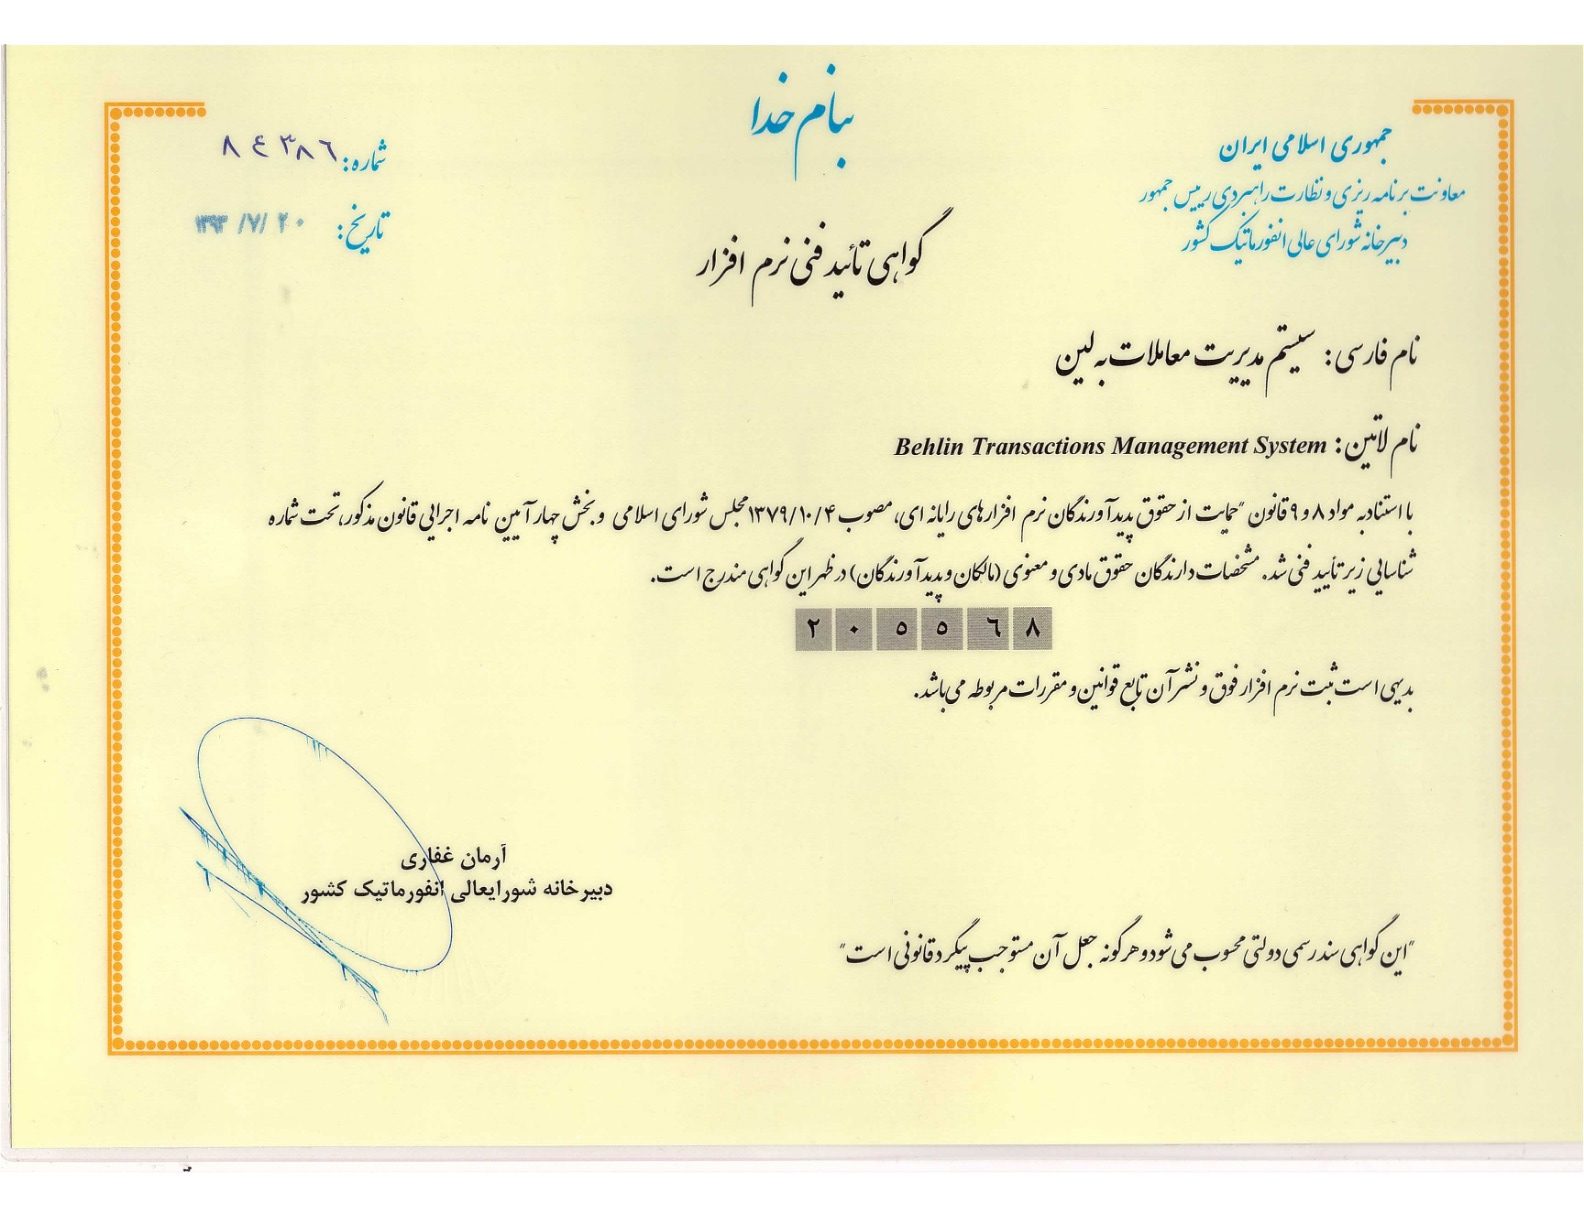 بنام خدا
جمهوری اسلامی ایران
معاونت برنامه ریزی و نظارت راهبردی رییس جمهور
دبیرخانه شورای عالی انفورماتیک کشور
شماره: ٨٤٣٨٦
تاریخ: ۱۳۹۳/۷/۲۰
گواهی تائید فنی نرم افزار
نام فارسی: سیستم مدیریت معاملات به لین
نام لاتین: Behlin Transactions Management System
با استناد به مواد ۸ و ۹ قانون "حمایت از حقوق پدیدآورندگان نرم افزارهای رایانه ای، مصوب ۱۳۷۹/۱۰/۴ مجلس شورای اسلامی و بخش چهار آیین نامه اجرایی قانون مذکور، تحت شماره
شناسایی زیر تأیید فنی شد. مشخصات دارندگان حقوق مادی و معنوی (مالکان و پدیدآورندگان) در ظهر این گواهی مندرج است.
٢٠٥٥٦٨
بدیهی است ثبت نرم افزار فوق و نشر آن تابع قوانین و مقررات مربوطه می باشد.
آرمان غفاری
دبیرخانه شورایعالی انفورماتیک کشور
"این گواهی سند رسمی دولتی محسوب می شود و هرگونه جعل آن مستوجب پیگرد قانونی است"